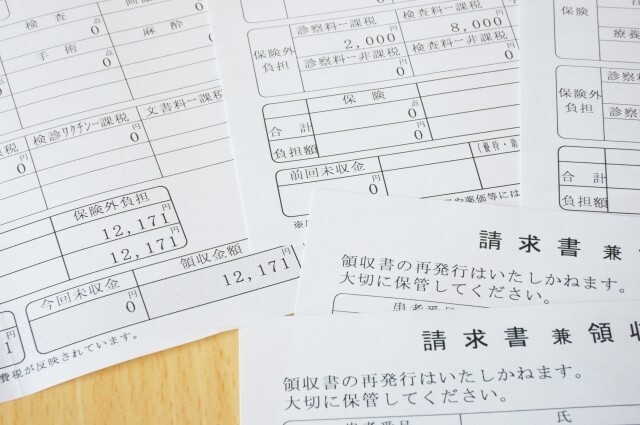 検査
0点
手術
0点
麻酔
0点
検診ワクチン－課税
0円
文書料－課税
0円
保険外負担
12,171円
12,171円
今回未収金
0円
領収金額
12,171円
費税が反映されています。
保険外
負担
診察料－課税
2,000円
検査料－課税
8,000円
診察料－非課税
0円
検査料－非課税
0円
保険
合計
0点
負担額
0円
前回未収金
0円
保険
保険外
負担
診察
診察
合計
負担額
請求書兼
領収書の再発行はいたしかねます。
大切に保管してください。
患者番号
請求書兼領収
領収書の再発行はいたしかねます。
大切に保管してください。
患者番号
氏